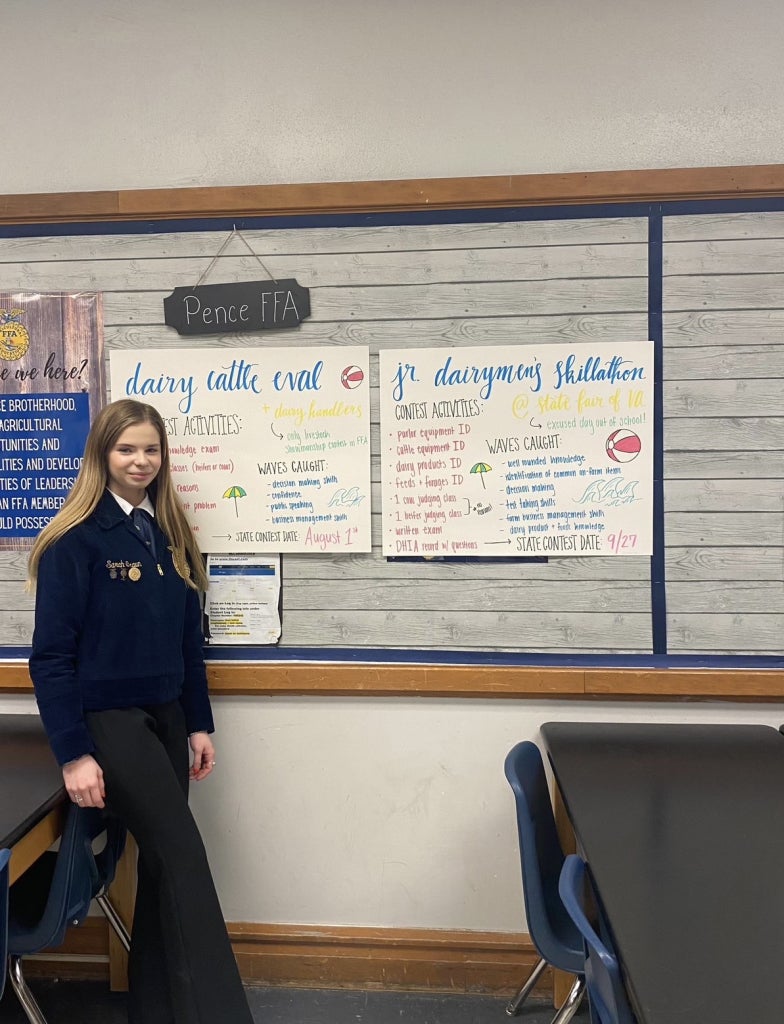 Pence FFA
FFA
we here?
BROTHERHOOD,
AGRICULTURAL
AND
AND
OF LEADERSHIP
FFA MEMBER
POSSESS
dairy cattle eval
+ dairy handlers
only livestock
showmanship contest in FFA
ACTIVITIES:
knowledge exam
classes (heifers or cows)
reasons
problem
exam
WAVES CAUGHT:
- decision making skills
- confidence
- public speaking
- business management skills
STATE CONTEST DATE: August 1st
jr. dairymen's skillathon
@ state fair of VA
excused day out of school!
CONTEST ACTIVITIES:
• parlor equipment ID
• cattle equipment ID
• dairy products ID
• feeds + forages ID
• 1 cow judging class
• 1 heifer judging class
no reasons!
• written exam
• DHIA record w/ questions
WAVES CAUGHT:
- well rounded knowledge
- identification of common on-farm items
- decision making
- test taking skills
- farm business management skills
- dairy product + feed knowledge
STATE CONTEST DATE: 9/27
Sarah
Click on Log In